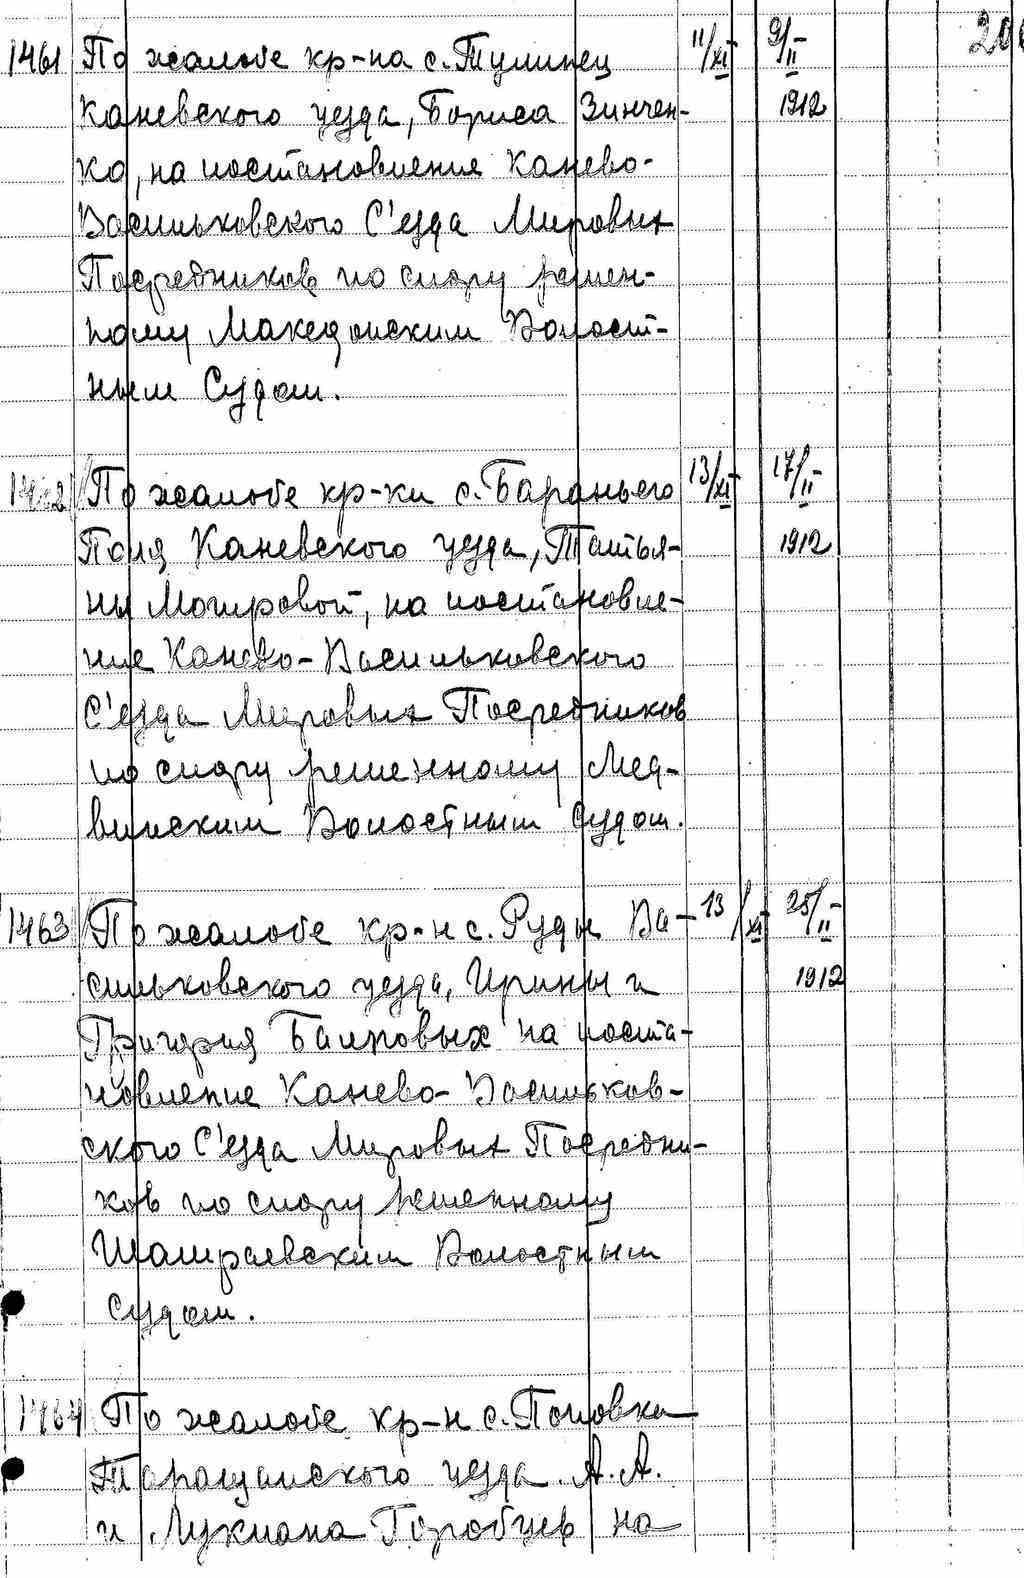 1461 По жалобе кр-на с. Тулинец 11/XI 9/II 200
Каневского уезда, Бориса Зинчен- 1912
ко, на постановление Канево-
Васильковского С'езда Мировых
Посредников по спору решен-
ному Македонским Волост-
ным Судом.
1462 По жалобе кр-ки с. Бараньего 13/XI 17/II
Поля Каневского уезда, Татья- 1912
ны Мотировой, на постановле-
ние Канево-Васильковского
С'езда Мировых Посредников
по спору решенному Мед-
винским Волостным Судом.
1463 По жалобе кр-н с. Руды Ва- 13/XI 25/II
сильковского уезда, Ирины и 1912
Григория на поста-
новление Канево-Васильков-
ского С'езда Мировых Посредни-
ков по спору решенному
Шамраевским Волостным
Судом.
1464 По жалобе кр-н с. Поповка
Таращанского уезда А. А.
и Лукиана Горобцев на